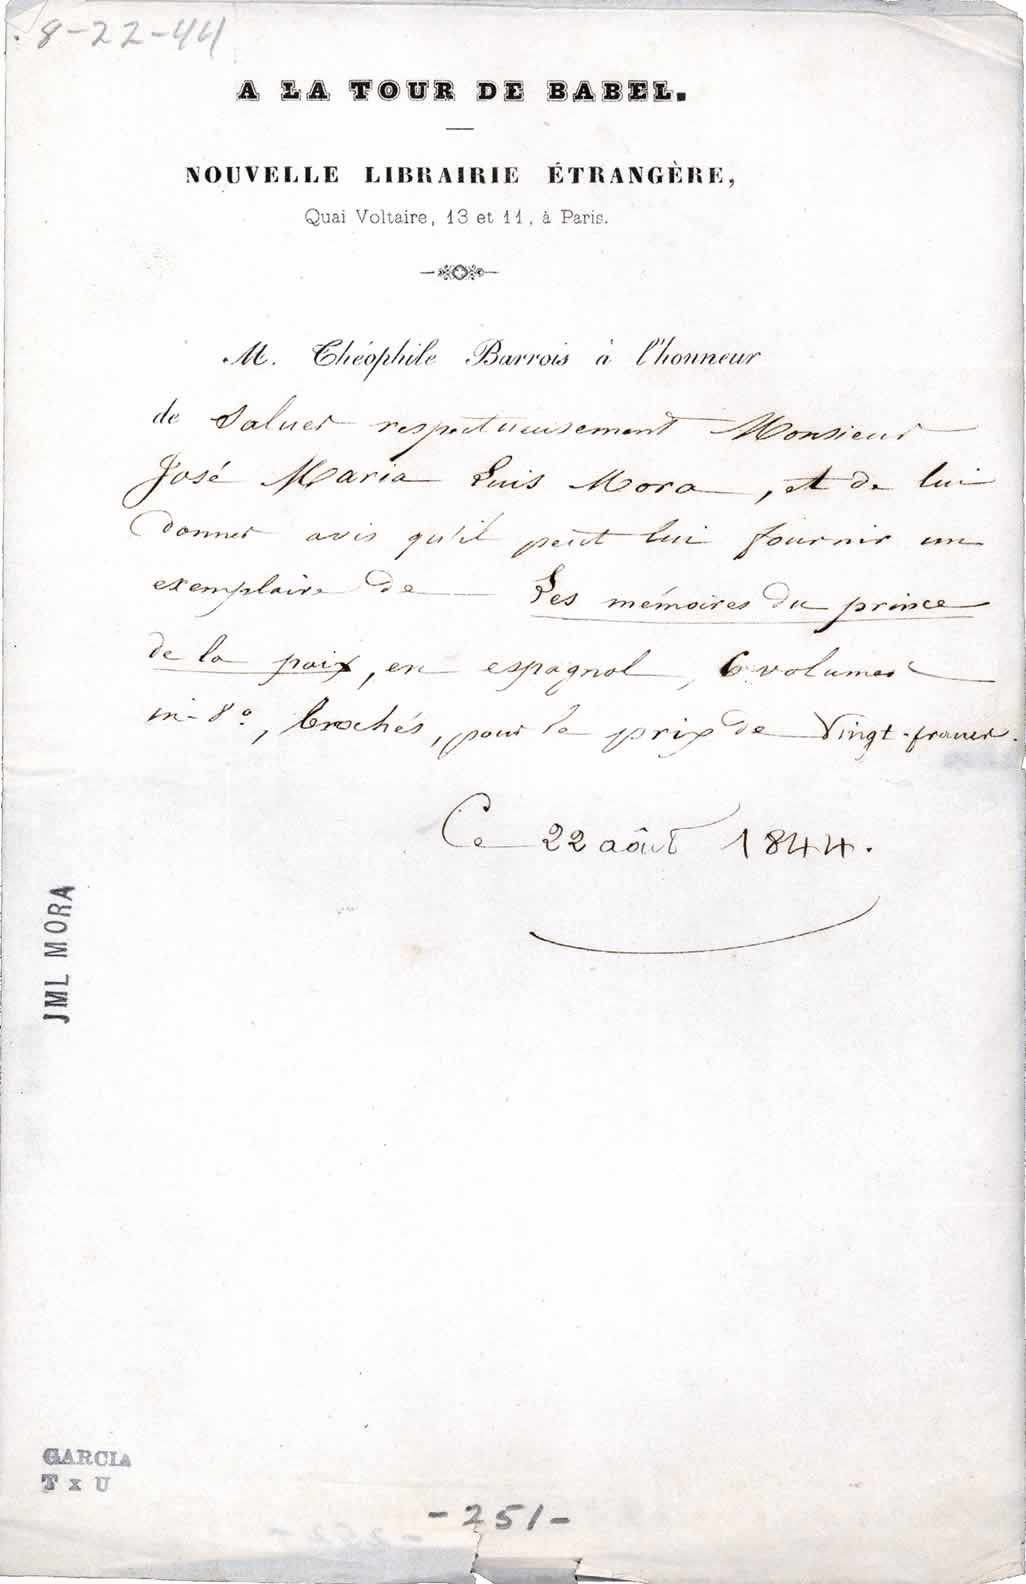 8-22-44
A LA TOUR DE BABEL.
NOUVELLE LIBRAIRIE ÉTRANGÈRE,
Quai Voltaire, 13 et 11, à Paris.
M. Théophile Barrois à l'honneur
de Saluer respectueusement Monsieur
José Maria Luis Mora, et de lui
donner avis qu'il peut lui fournir un
exemplaire de Les mémoires du prince
de la paix, en espagnol, 6 volumes
in-8º, brochés, pour le prix de Vingt-francs.
Ce 22 aôut 1844.
JML MORA
GARCIA
T x U
-251-
-252-